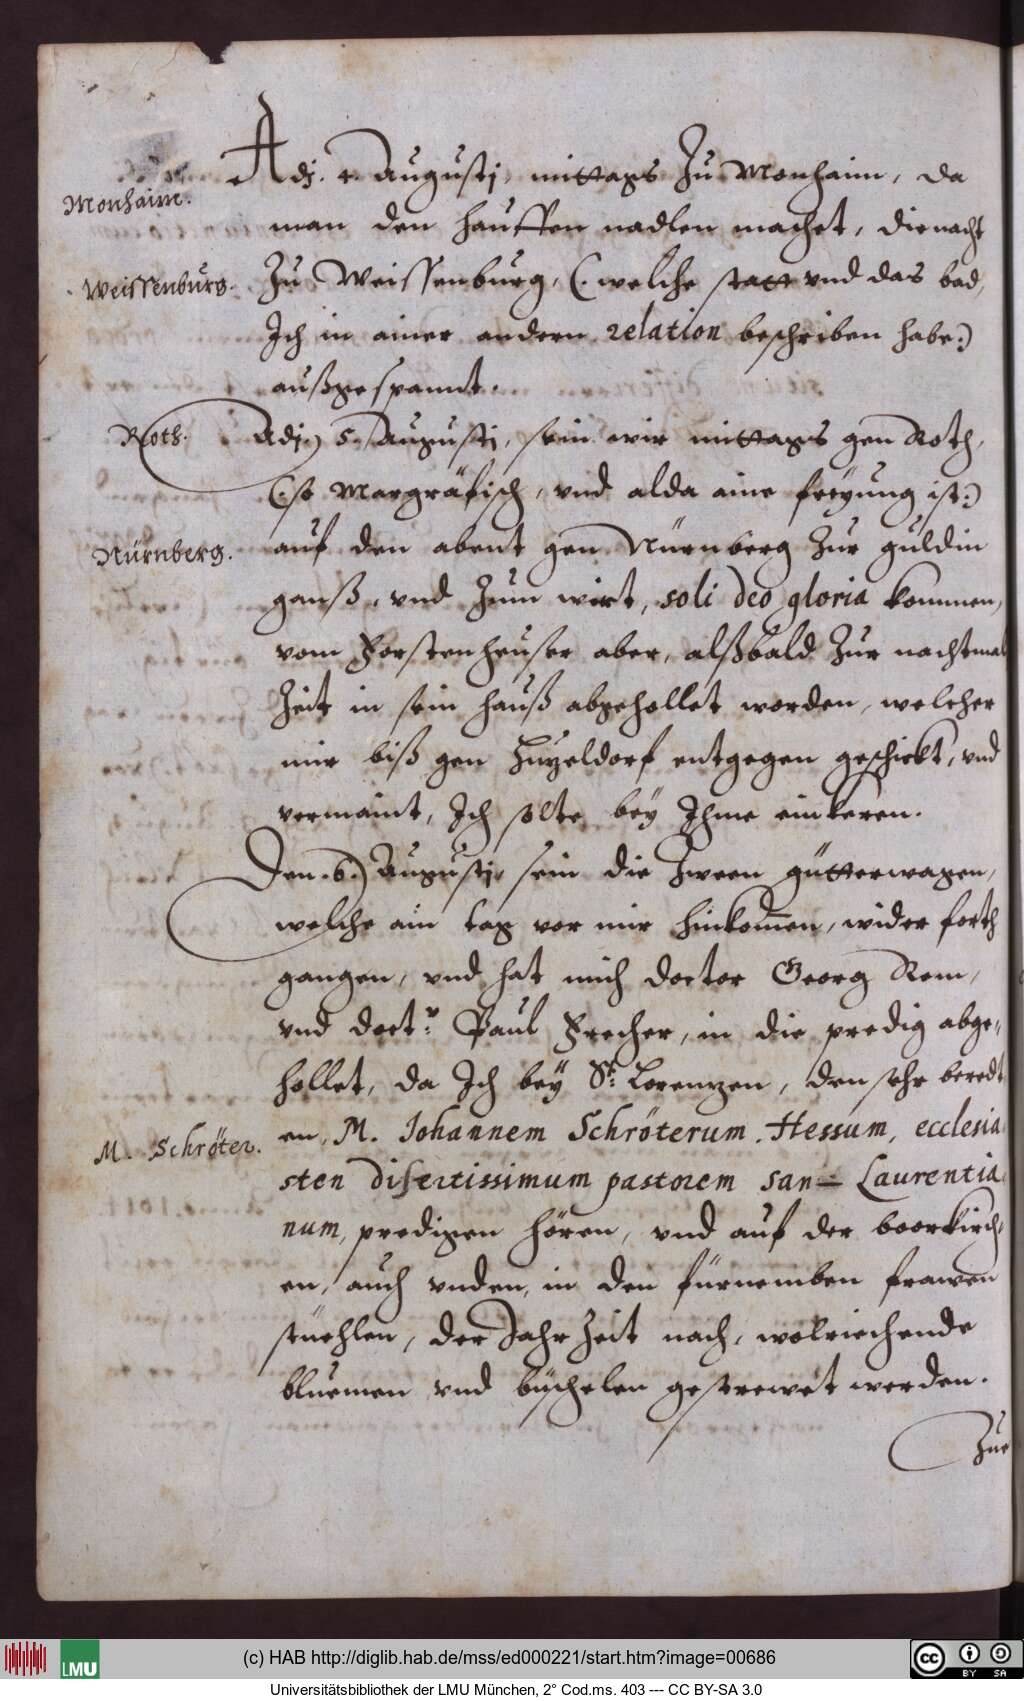 Adj. 4. Augustj, mittags Zu Monhaim, da
Monhaim.
man den hauffen nadlen machet, die nacht
Weissenburg.
Zu Weissenburg, (: welche statt vnd das bad,
Ich in ainer andern relation beschriben habe:)
außgespannt.
Roth.
Adj. 5. Augustj, sein wir mittags gen Roth,
(: so Margräfisch, vnd alda aine freyung ist:)
Nürnberg.
auf den abent gen Nürnberg Zur guldin
ganß, vnd Zum wirt, soli deo gloria kommen,
vom Forstenheuser aber, alßbald Zur nachtmal
Zeit in sein hauß abgehollet worden, welcher
mir biß gen geschickt, vnd
vermaint, Ich solte bey Ihme einkeren.
Den. 6.) Augustj, sein die Zween gütterwagen,
welche ain tag vor mir hinkom̄en, wider forth
gangen, vnd hat mich doctor Georg Rem,
vnd doctr: Paul Frecher, in die predig abge„
hollet, da Ich bey St: Lorenzen, den sehr beredt
M. Schröter.
en, M. Johannem Schröterum. Hessum, ecclesia
sten disertissimum pastorem san= Laurentia
num, predigen hören, vnd auf der boorkirch„
en, auch vnden, in den fürnemben frawen
stuehlen, der Jahr Zeit nach, wolriechende
bluemen vnd büschelen gestrewet werden.
Zue
(c) HAB http://diglib.hab.de/mss/ed000221/start.htm?image=00686
LMU
cc BY SA
Universitätsbibliothek der LMU München, 2° Cod.ms. 403 --- CC BY-SA 3.0